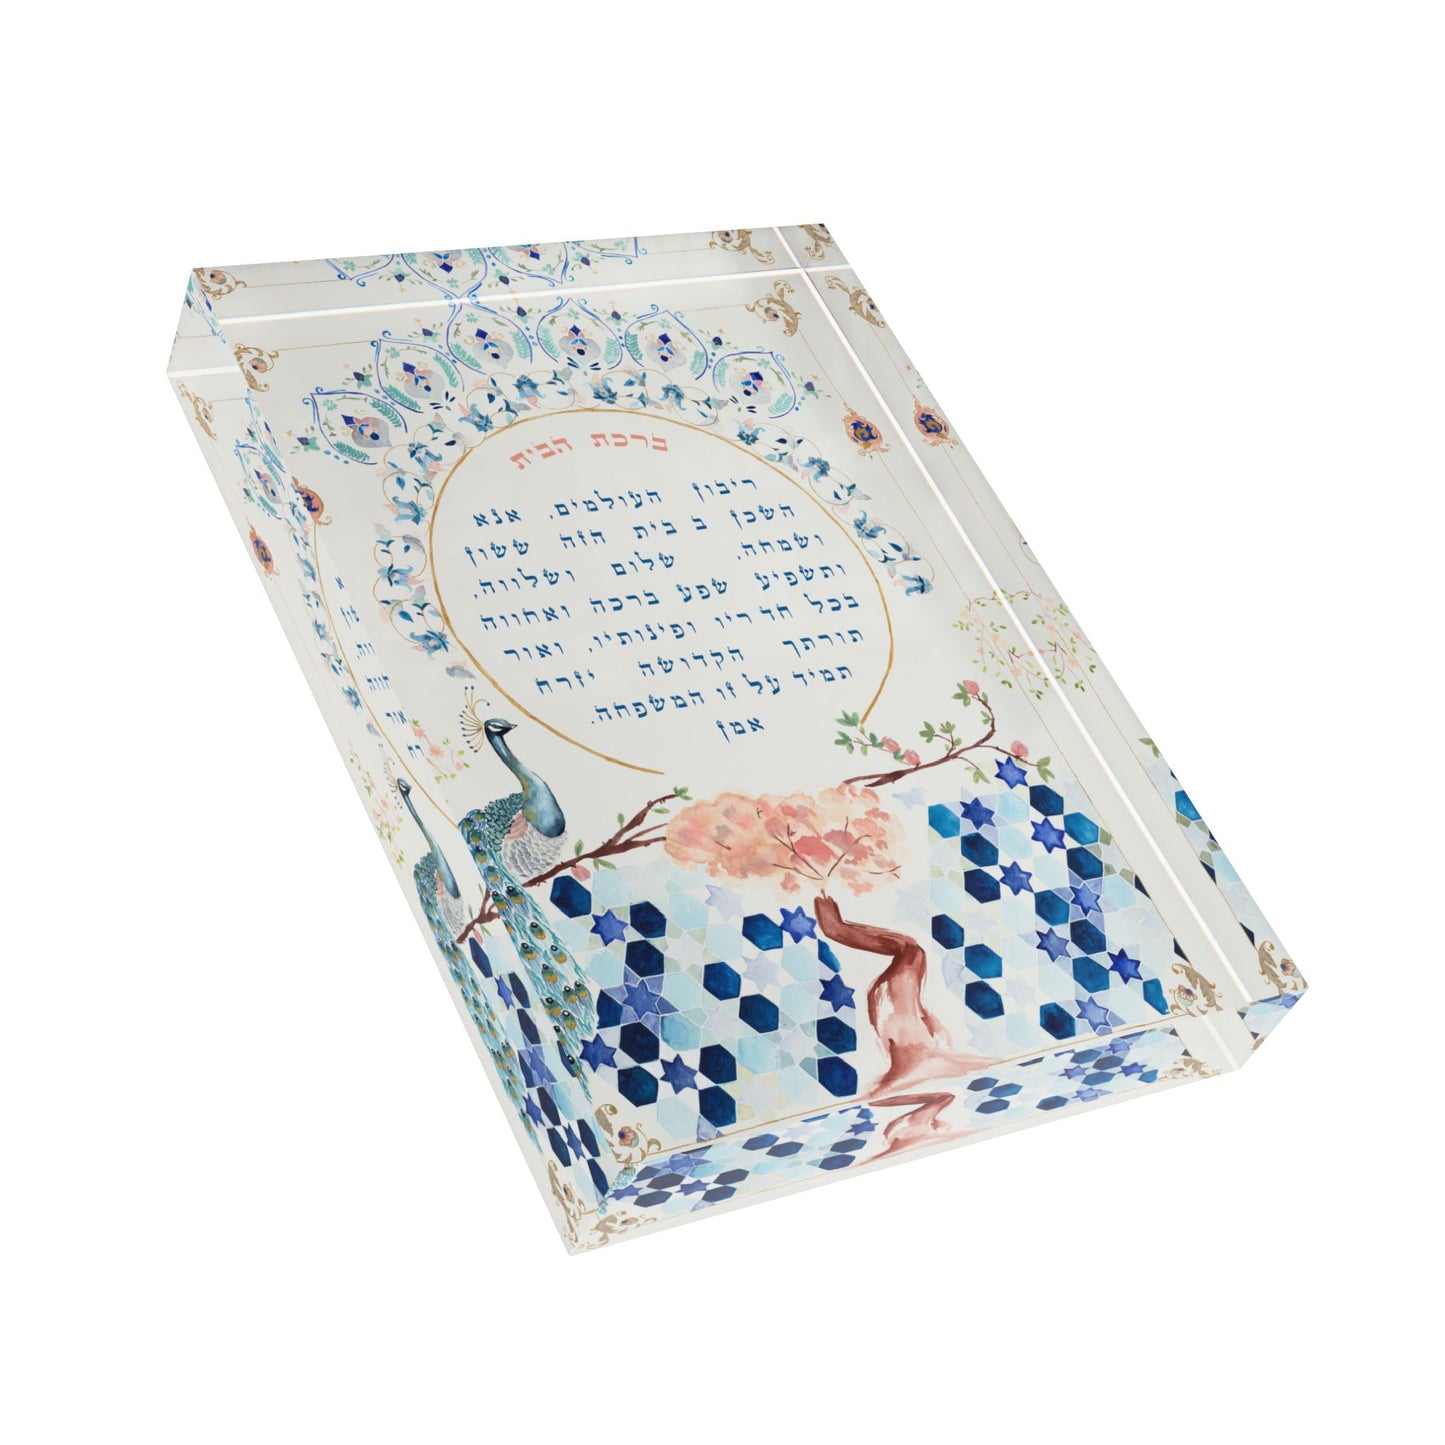 ברכת הבית
ריבון העולמים, אנא
השכן ב בית הזה ששון
ושמחה, שלום ושלווה,
ותשפיע שפע ברכה ואחווה
בכל חדריו ופינותיו, ואור
תורתך הקדושה יזרח
תמיד על זו המשפחה.
אמן